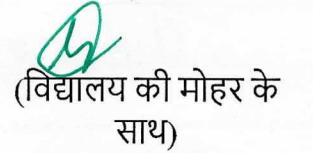 (विद्यालय की मोहर के
साथ)